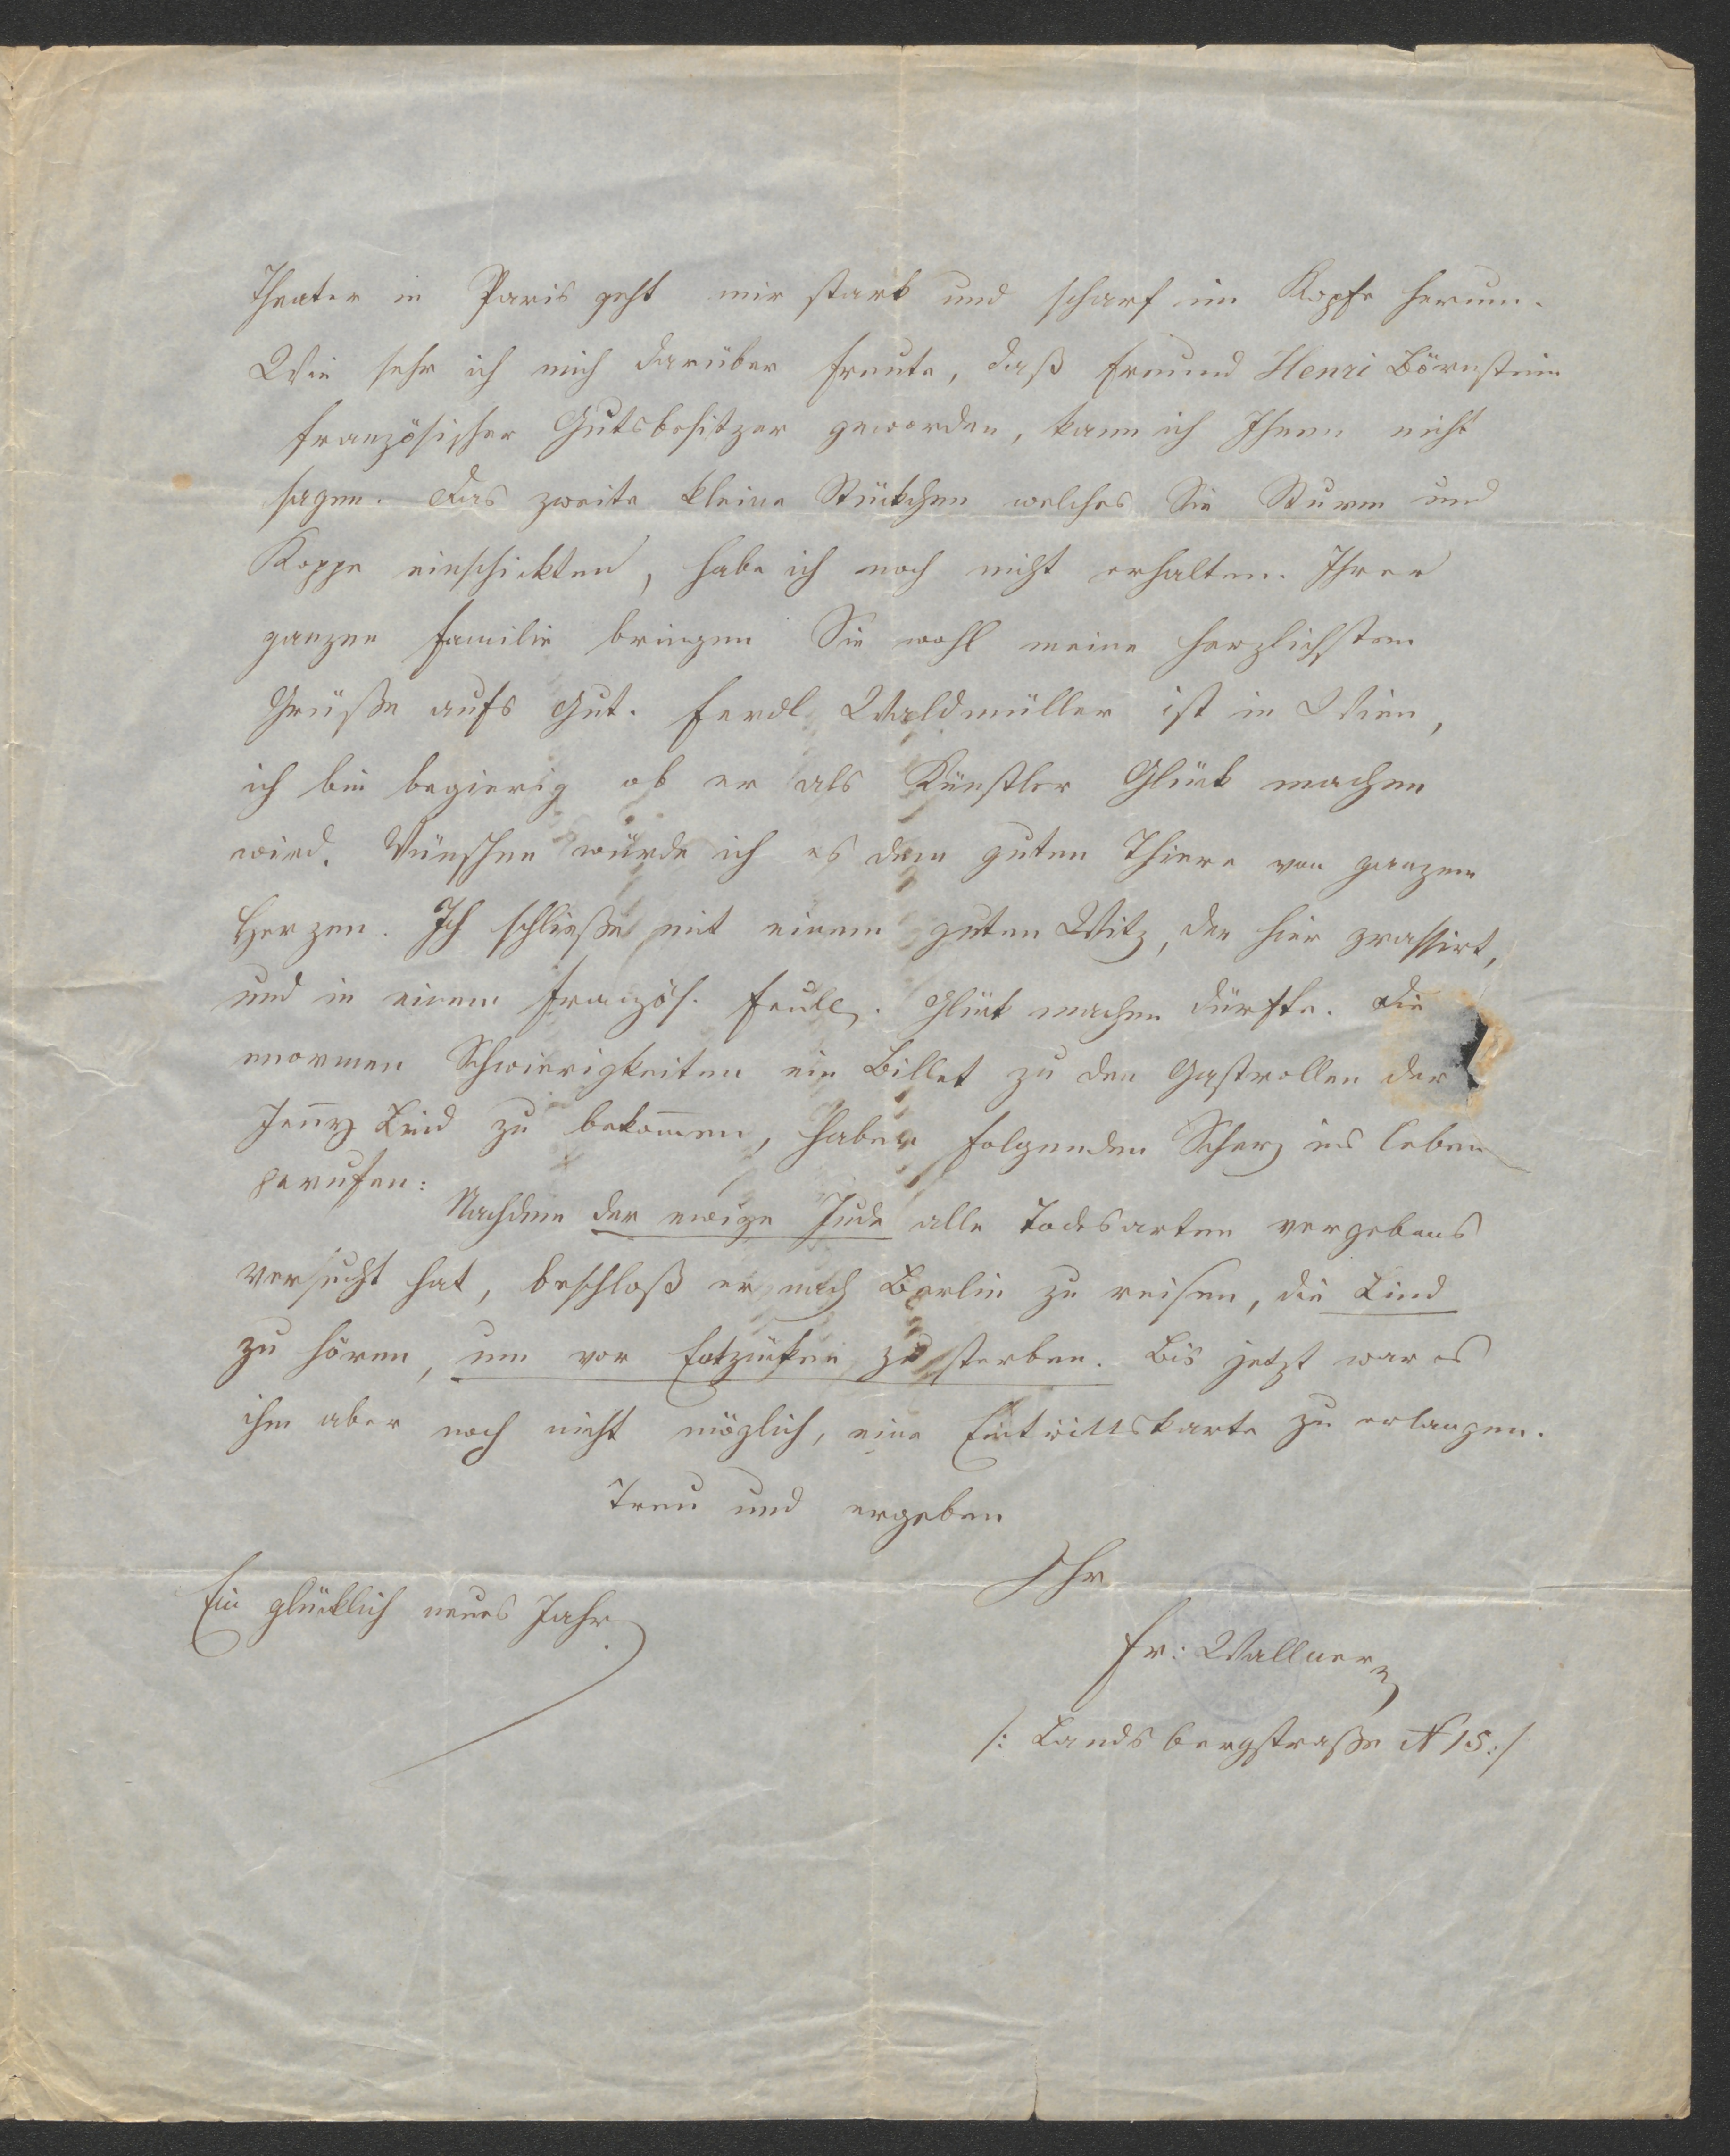 Theater in Paris geht mir stark und scharf im Kopfe herum.
Wie sehr ich mich darüber freute, daß Freund Henri Börnstein
französischer Gutsbesitzer geworden, kann ich Ihnen nicht
sagen. Das zweite kleine Stückchen welches Sie Sturm und
Koppe einschickten, habe ich noch nicht erhalten. Ihrer
ganzen Familie bringen Sie wohl meine herzlichsten
Grüße aufs Gut. Ferdl Waldmüller ist in Wien,
ich bin begierig ob er als Künstler Glück machen
wird. Wünschen würde ich es dem guten Thiere von ganzem
Herzen. Ich schließe mit einem guten Witz, der hier grassirt,
und in einem französ. Feuill. Glück machen dürfte. Die
enormen Schwierigkeiten ein Billet zu den Gastrollen der
Jeñy Lind zu bekom̄en, haben folgenden Scherz ins Leben
gerufen:
Nachdem der ewige Jude alle Todesarten vergebens
versucht hat, beschloß er nach Berlin zu reisen, die Lind
zu hören, um vor Entzücken zu sterben. Bis jetzt war es
ihm aber noch nicht möglich, eine Eintrittskarte zu erlangen.
Treu und ergeben
Ihr
Ein glücklich neues Jahr.
Fr: Wallner
/: Landsbergstraße N 15:/